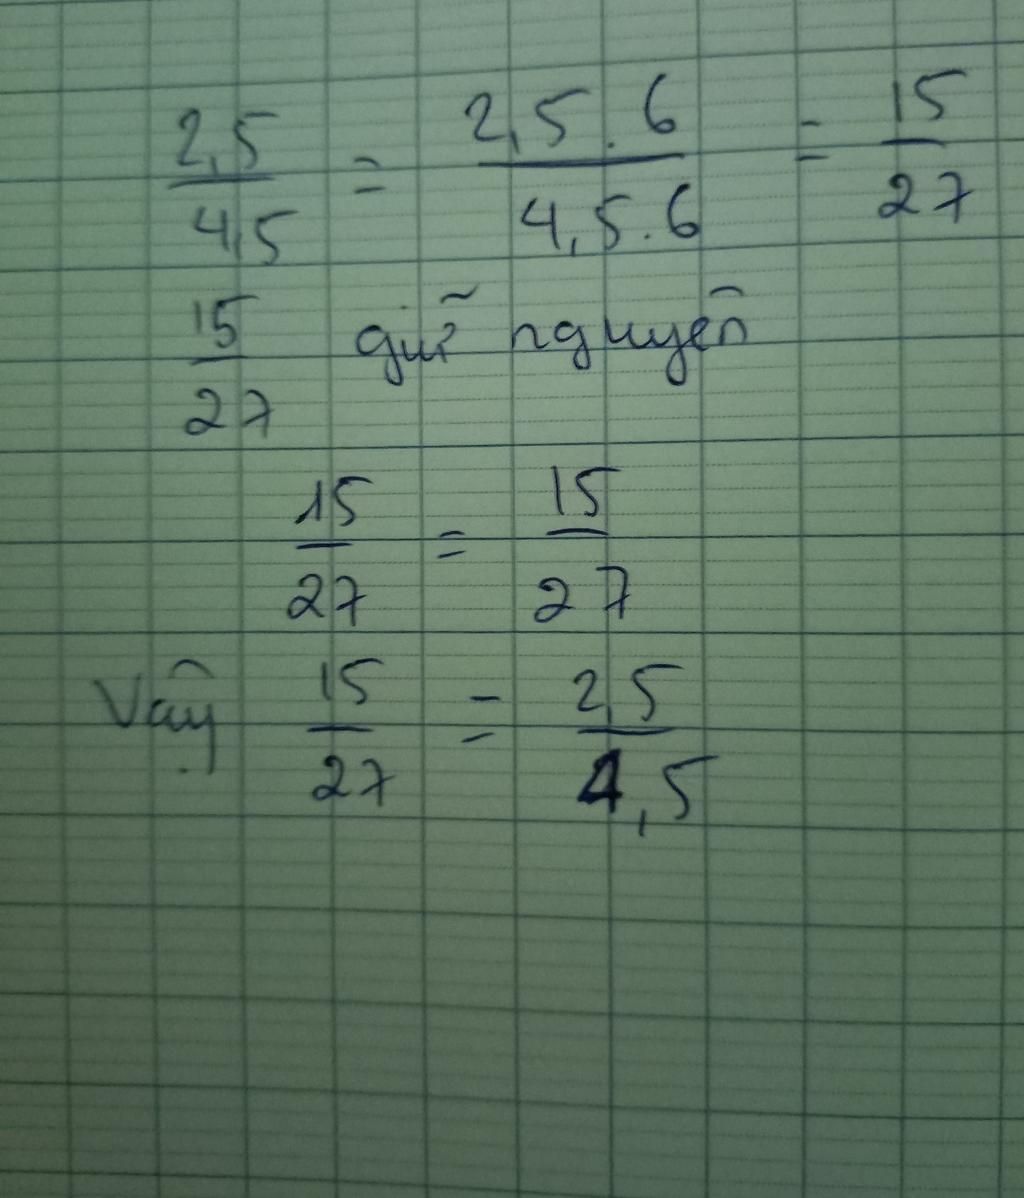 2,5/4,5 = 2,5.6/4,5.6 = 15/27
15/27 giữ nguyên
15/27 = 15/27
Vậy 15/27 = 2,5/4,5